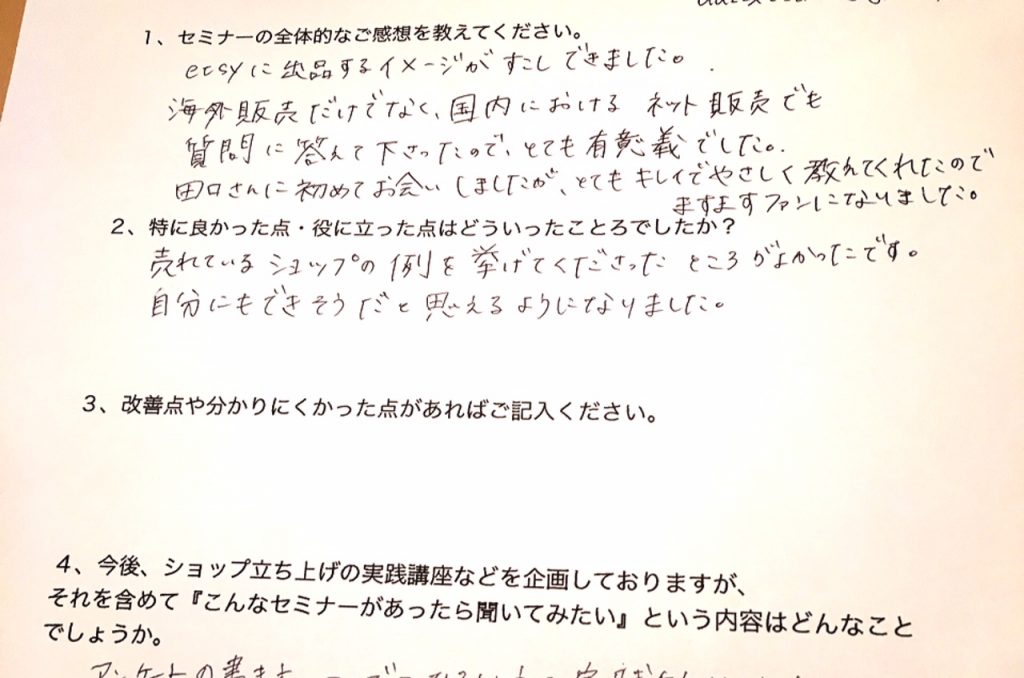 1、セミナーの全体的なご感想を教えてください。
etsyに出品するイメージがすこしできました。
海外販売だけでなく、国内における ネット販売でも
質問に答えて下さったので、とても有意義でした。
田口さんに初めてお会いしましたが、とてもキレイでやさしく教えてくれたので
ますますファンになりました。
2、特に良かった点・役に立った点はどういったことろでしたか?
売れているショップの例を挙げてくださったところがよかったです。
自分にもできそうだと思えるようになりました。
3、改善点や分かりにくかった点があればご記入ください。
4、今後、ショップ立ち上げの実践講座などを企画しておりますが、
それを含めて『こんなセミナーがあったら聞いてみたい』という内容はどんなこと
でしょうか。
アンケートの書き